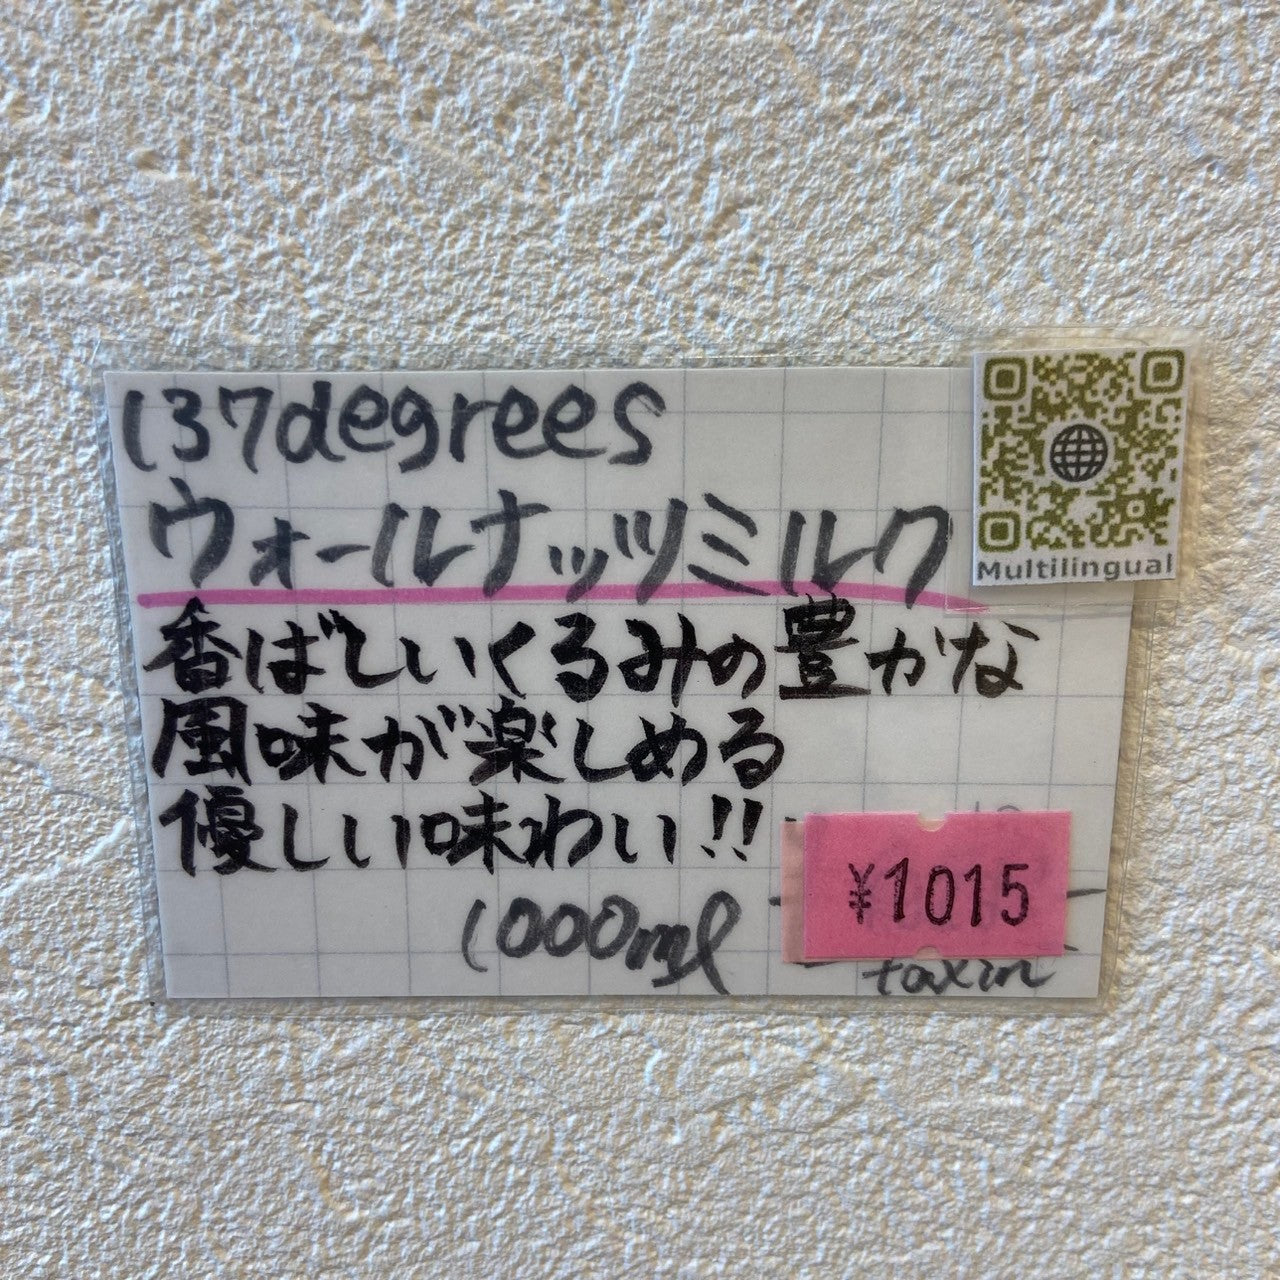 137degrees
ウォールナッツミルク
Multilingual
香ばしいくるみの豊かな
風味が楽しめる
優しい味わい!!
¥1015
1000ml
taxin